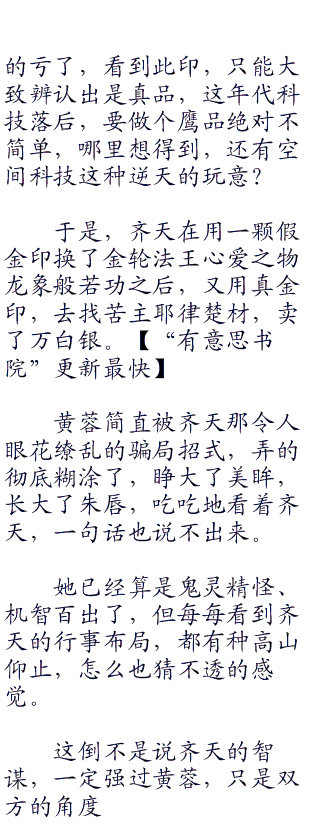 的亏了，看到此印，只能大
致辨认出是真品，这年代科
技落后，要做个鹰品绝对不
简单，哪里想得到，还有空
间科技这种逆天的玩意？
于是，齐天在用一颗假
金印换了金轮法王心爱之物
龙象般若功之后，又用真金
印，去找苦主耶律楚材，卖
了万白银。【“有意思书
院”更新最快】
黄蓉简直被齐天那令人
眼花缭乱的骗局招式，弄的
彻底糊涂了，睁大了美眸，
长大了朱唇，吃吃地看着齐
天，一句话也说不出来。
她已经算是鬼灵精怪、
机智百出了，但每每看到齐
天的行事布局，都有种高山
仰止，怎么也猜不透的感
觉。
这倒不是说齐天的智
谋，一定强过黄蓉，只是双
方的角度